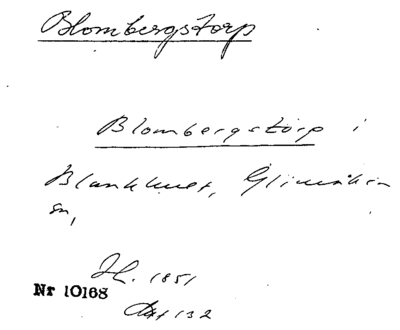 Blombergstorp
Blombergstorp i
Blankhult, Glimåkra
sn,
Hl. 1851
Nr 10168
132